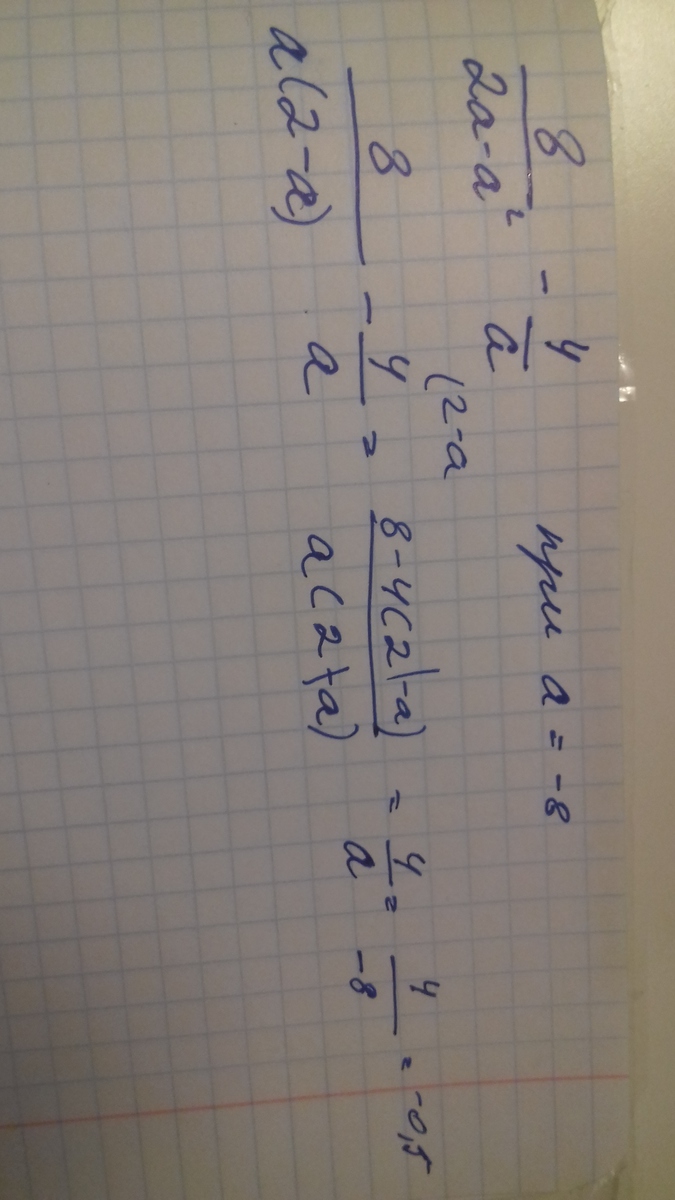 8/(2a-a²) - 4/a при a = -8
(2-a
8/(a(2-a)) - 4/a = (8-4(2-a))/(a(2-a)) = 4/a = 4/-8 = -0,5